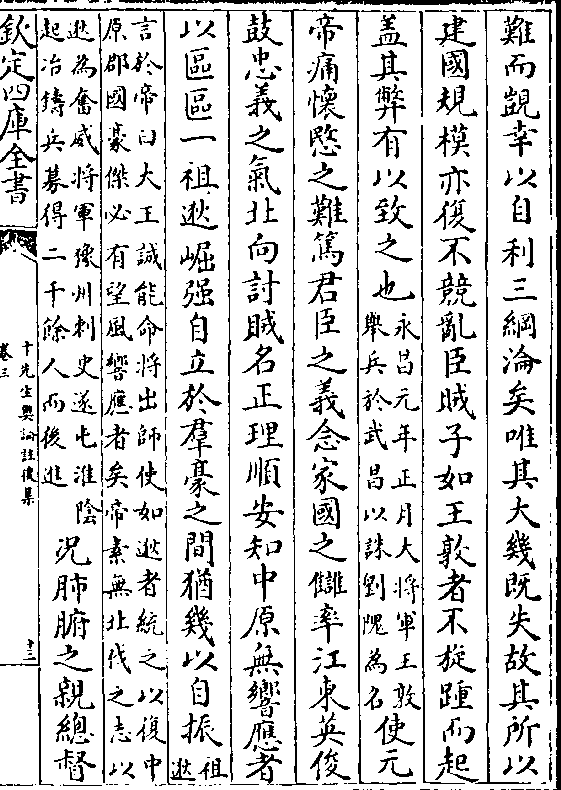 難而覬幸以自利三綱淪矣唯其大幾既失故其所以
建國規模亦復不競亂臣賊子如王敦者不旋踵而起
蓋其弊有以致之也永昌元年正月大將軍王敦
舉兵於武昌以誅劉隗為名使元
帝痛懷愍之難篤君臣之義念家國之讎率江東英俊
鼓忠義之氣北向討賊名正理順安知中原無響應者
以區區一祖逖崛强自立於羣豪之間猶幾以自振祖
逖
言於帝曰大王誠能命將出師使如逖者統之以復中
原郡國豪傑必有望風響應者矣帝素無北伐之志以
逖為奮威將軍豫州刺史遂屯淮陰
起冶鑄兵募得二千餘人而後進況肺腑之親總督
欽定四庫全書
十先生奧論註後集
卷三
十二